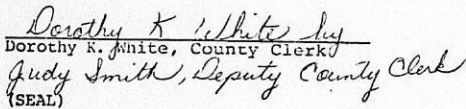 Dorothy K White by
Dorothy K. White, County Clerk
Judy Smith, Deputy County Clerk
(SEAL)